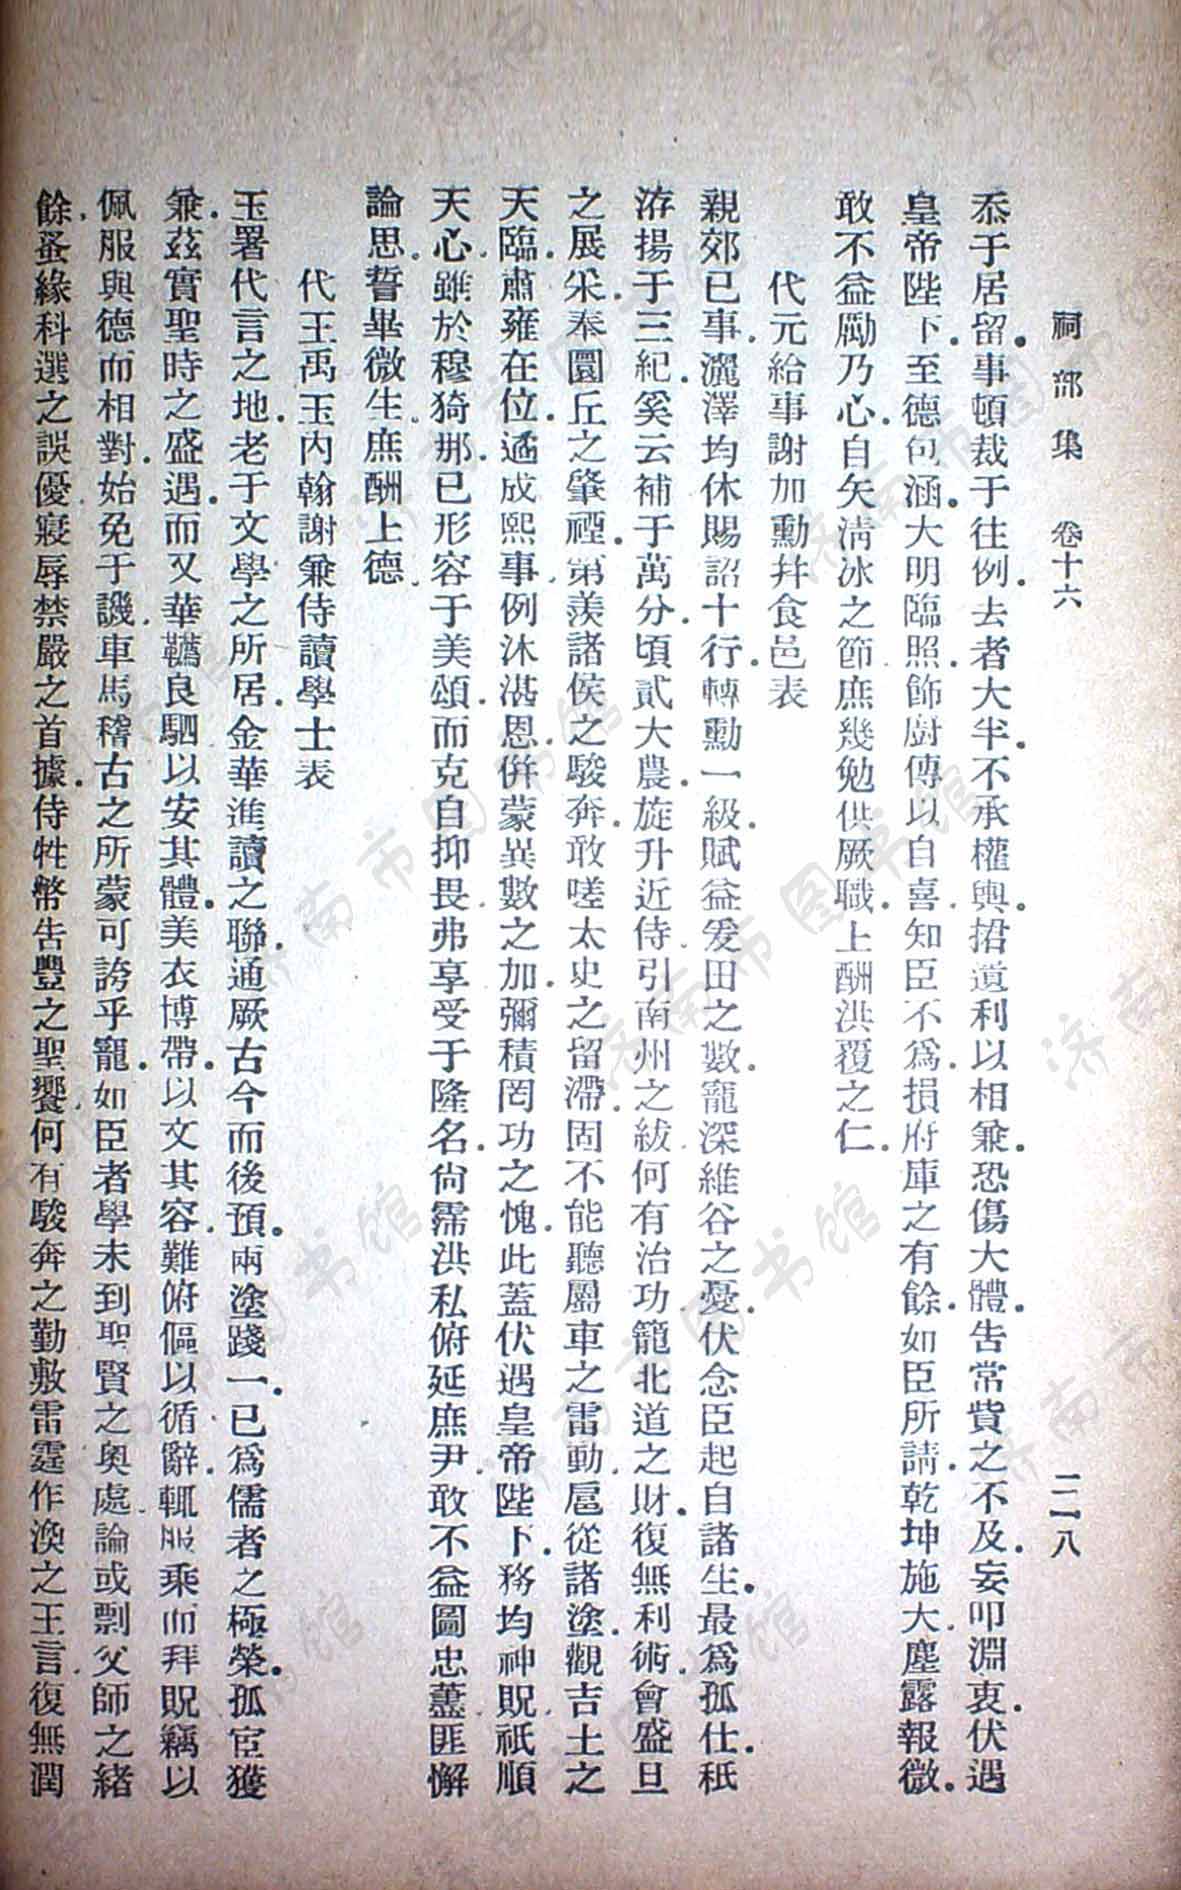 祠部集 卷十六 二一八
忝于居留事頓裁于往例去者大半不承權輿捃遺利以相兼恐傷大體告常貲之不及妄叩淵衷伏遇
皇帝陛下至德包涵大明臨照飾廚傳以自喜知臣不爲損府庫之有餘如臣所請乾坤施大塵露報微
敢不益勵乃心自矢淸冰之節庶幾勉供厥職上酬洪覆之仁
代元給事謝加勳幷食邑表
親郊已事灑澤均休賜詔十行轉勳一級賦益爰田之數寵深維谷之憂伏念臣起自諸生最爲孤仕秖
洊揚于三紀奚云補于萬分頃貳大農旋升近侍引南州之紱何有治功籠北道之財復無利術會盛旦
之展采奉圜丘之肇禋第羨諸侯之駿奔敢嗟太史之留滯固不能聽屬車之雷動扈從諸塗觀吉土之
天臨肅雍在位遹成熙事例沐湛恩倂蒙異數之加彌積罔功之愧此蓋伏遇皇帝陛下務均神貺祇順
天心雖於穆猗那已形容于美頌而克自抑畏弗享受于隆名尙霈洪私俯延庶尹敢不益圖忠藎匪懈
論思誓畢微生庶酬上德
代王禹玉內翰謝兼侍讀學士表
玉署代言之地老于文學之所居金華進讀之聯通厥古今而後預兩塗踐一已爲儒者之極榮孤宦獲
兼茲實聖時之盛遇而又華韉良駟以安其體美衣博帶以文其容難俯傴以循辭輒服乘而拜貺竊以
佩服與德而相對始免于譏車馬稽古之所蒙可誇乎寵如臣者學未到聖賢之奧處論或剽父師之緒
餘蚤緣科選之誤優寖辱禁嚴之首據侍牲幣告豐之聖饗何有駿奔之勤敷雷霆作渙之王言復無潤